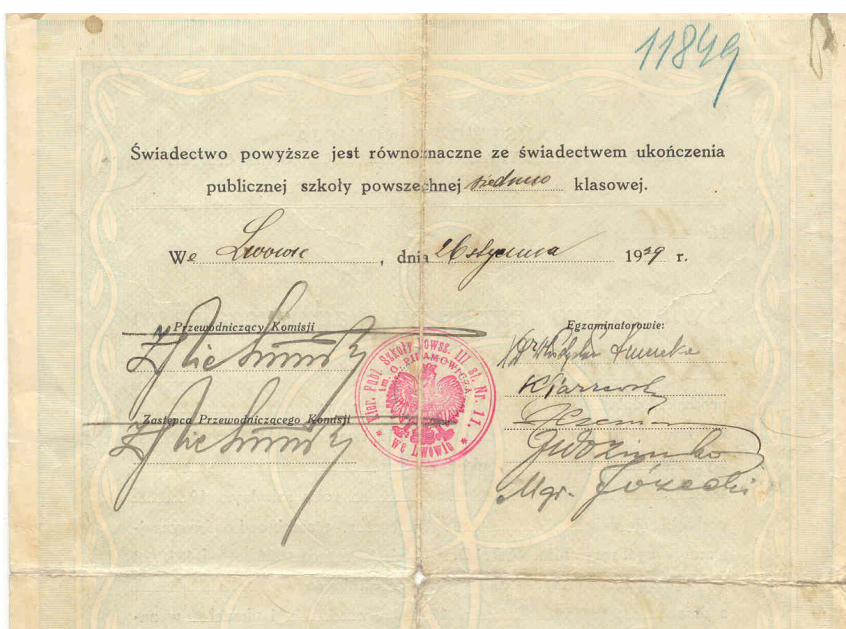 11849
Świadectwo powyższe jest równoznaczne ze świadectwem ukończenia
publicznej szkoły powszechnej siedmio klasowej.
We Lwowie, dnia 26 stycznia 1939 r.
Przewodniczący Komisji
Egzaminatorowie:
Zastępca Przewodniczącego Komisji
Kier. Publ. Szkoły Powsz. III st. Nr. 11.
im. G. PIRAMOWICZA
* We Lwowie *
Mgr. Józecki